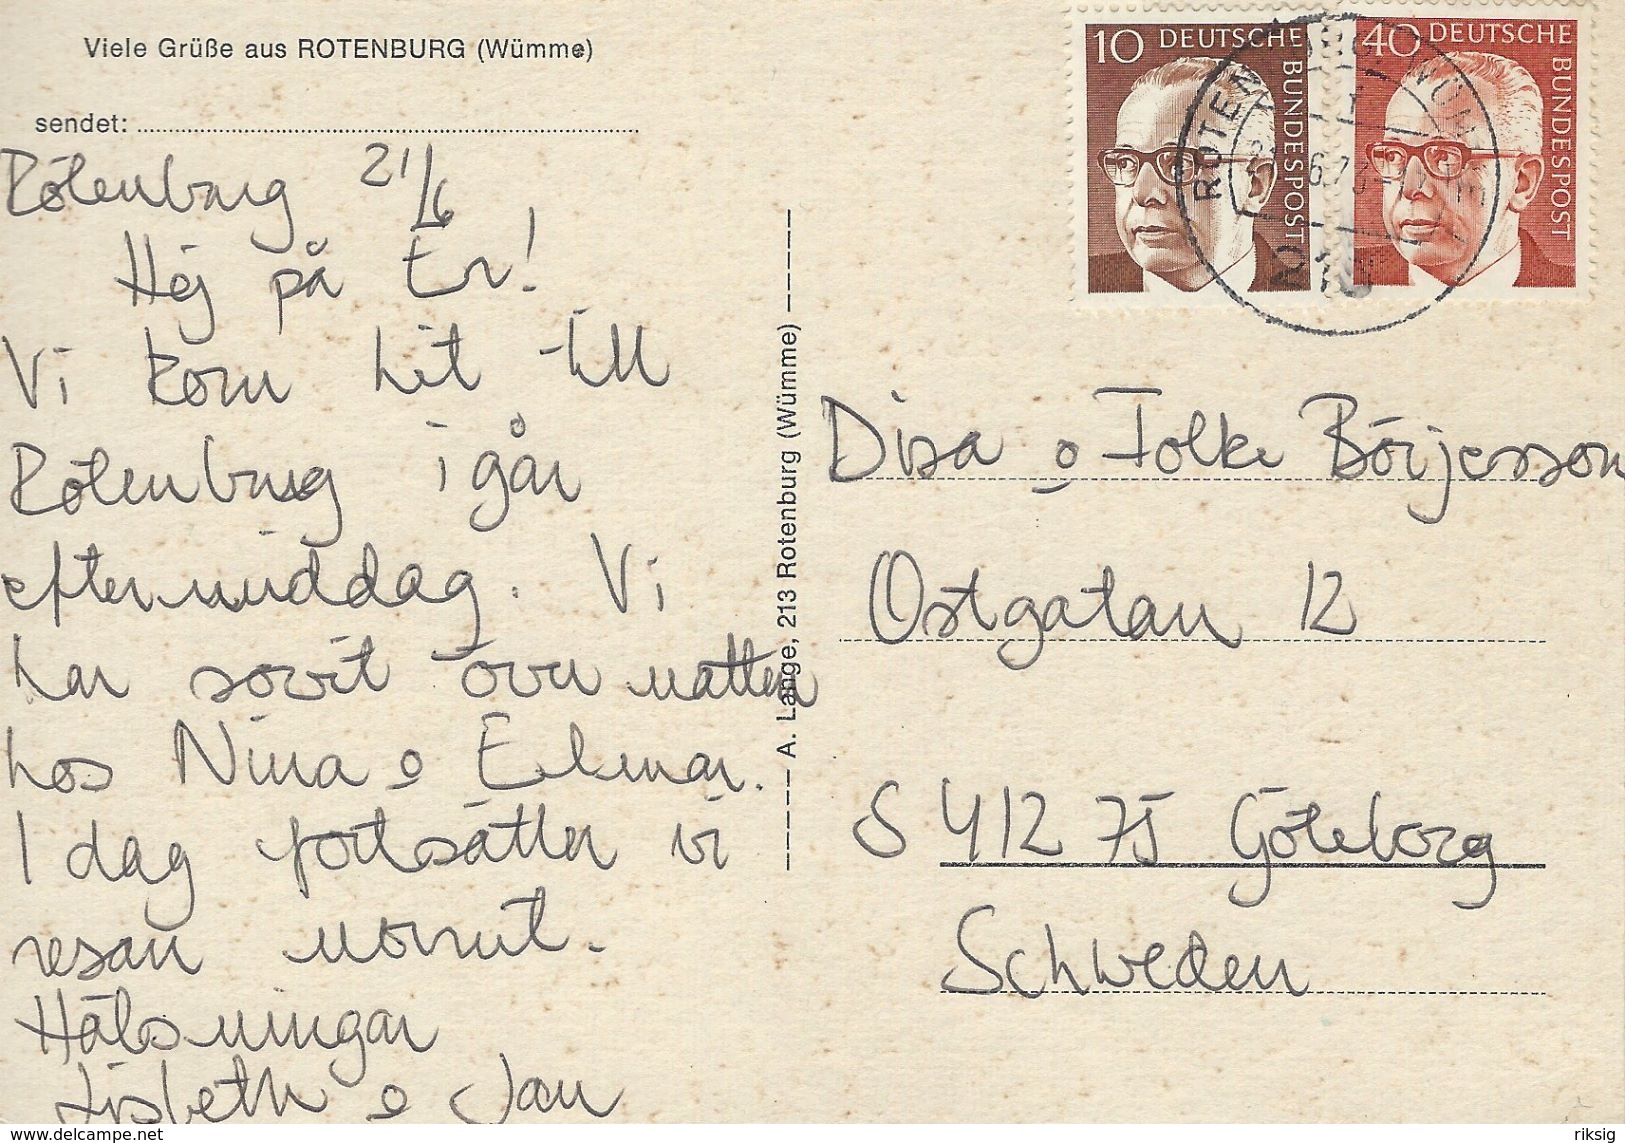 Viele Grüße aus ROTENBURG (Wümme)
sendet:
Rötenburg 21/6
Hej på Er!
Vi kom hit till
Rötenburg igår
eftermiddag. Vi
har sovit över natten
hos Nina o Elmar.
I dag fortsätter vi
resan norrut.
Hälsningar
Lisbeth o Jan
A. Lange, 213 Rotenburg (Wümme)
10 DEUTSCHE BUNDESPOST
40 DEUTSCHE BUNDESPOST
Disa o Folke Börjesson
Ostgatan 12
S 412 75 Göteborg
Schweden
delcampe.net
riksig